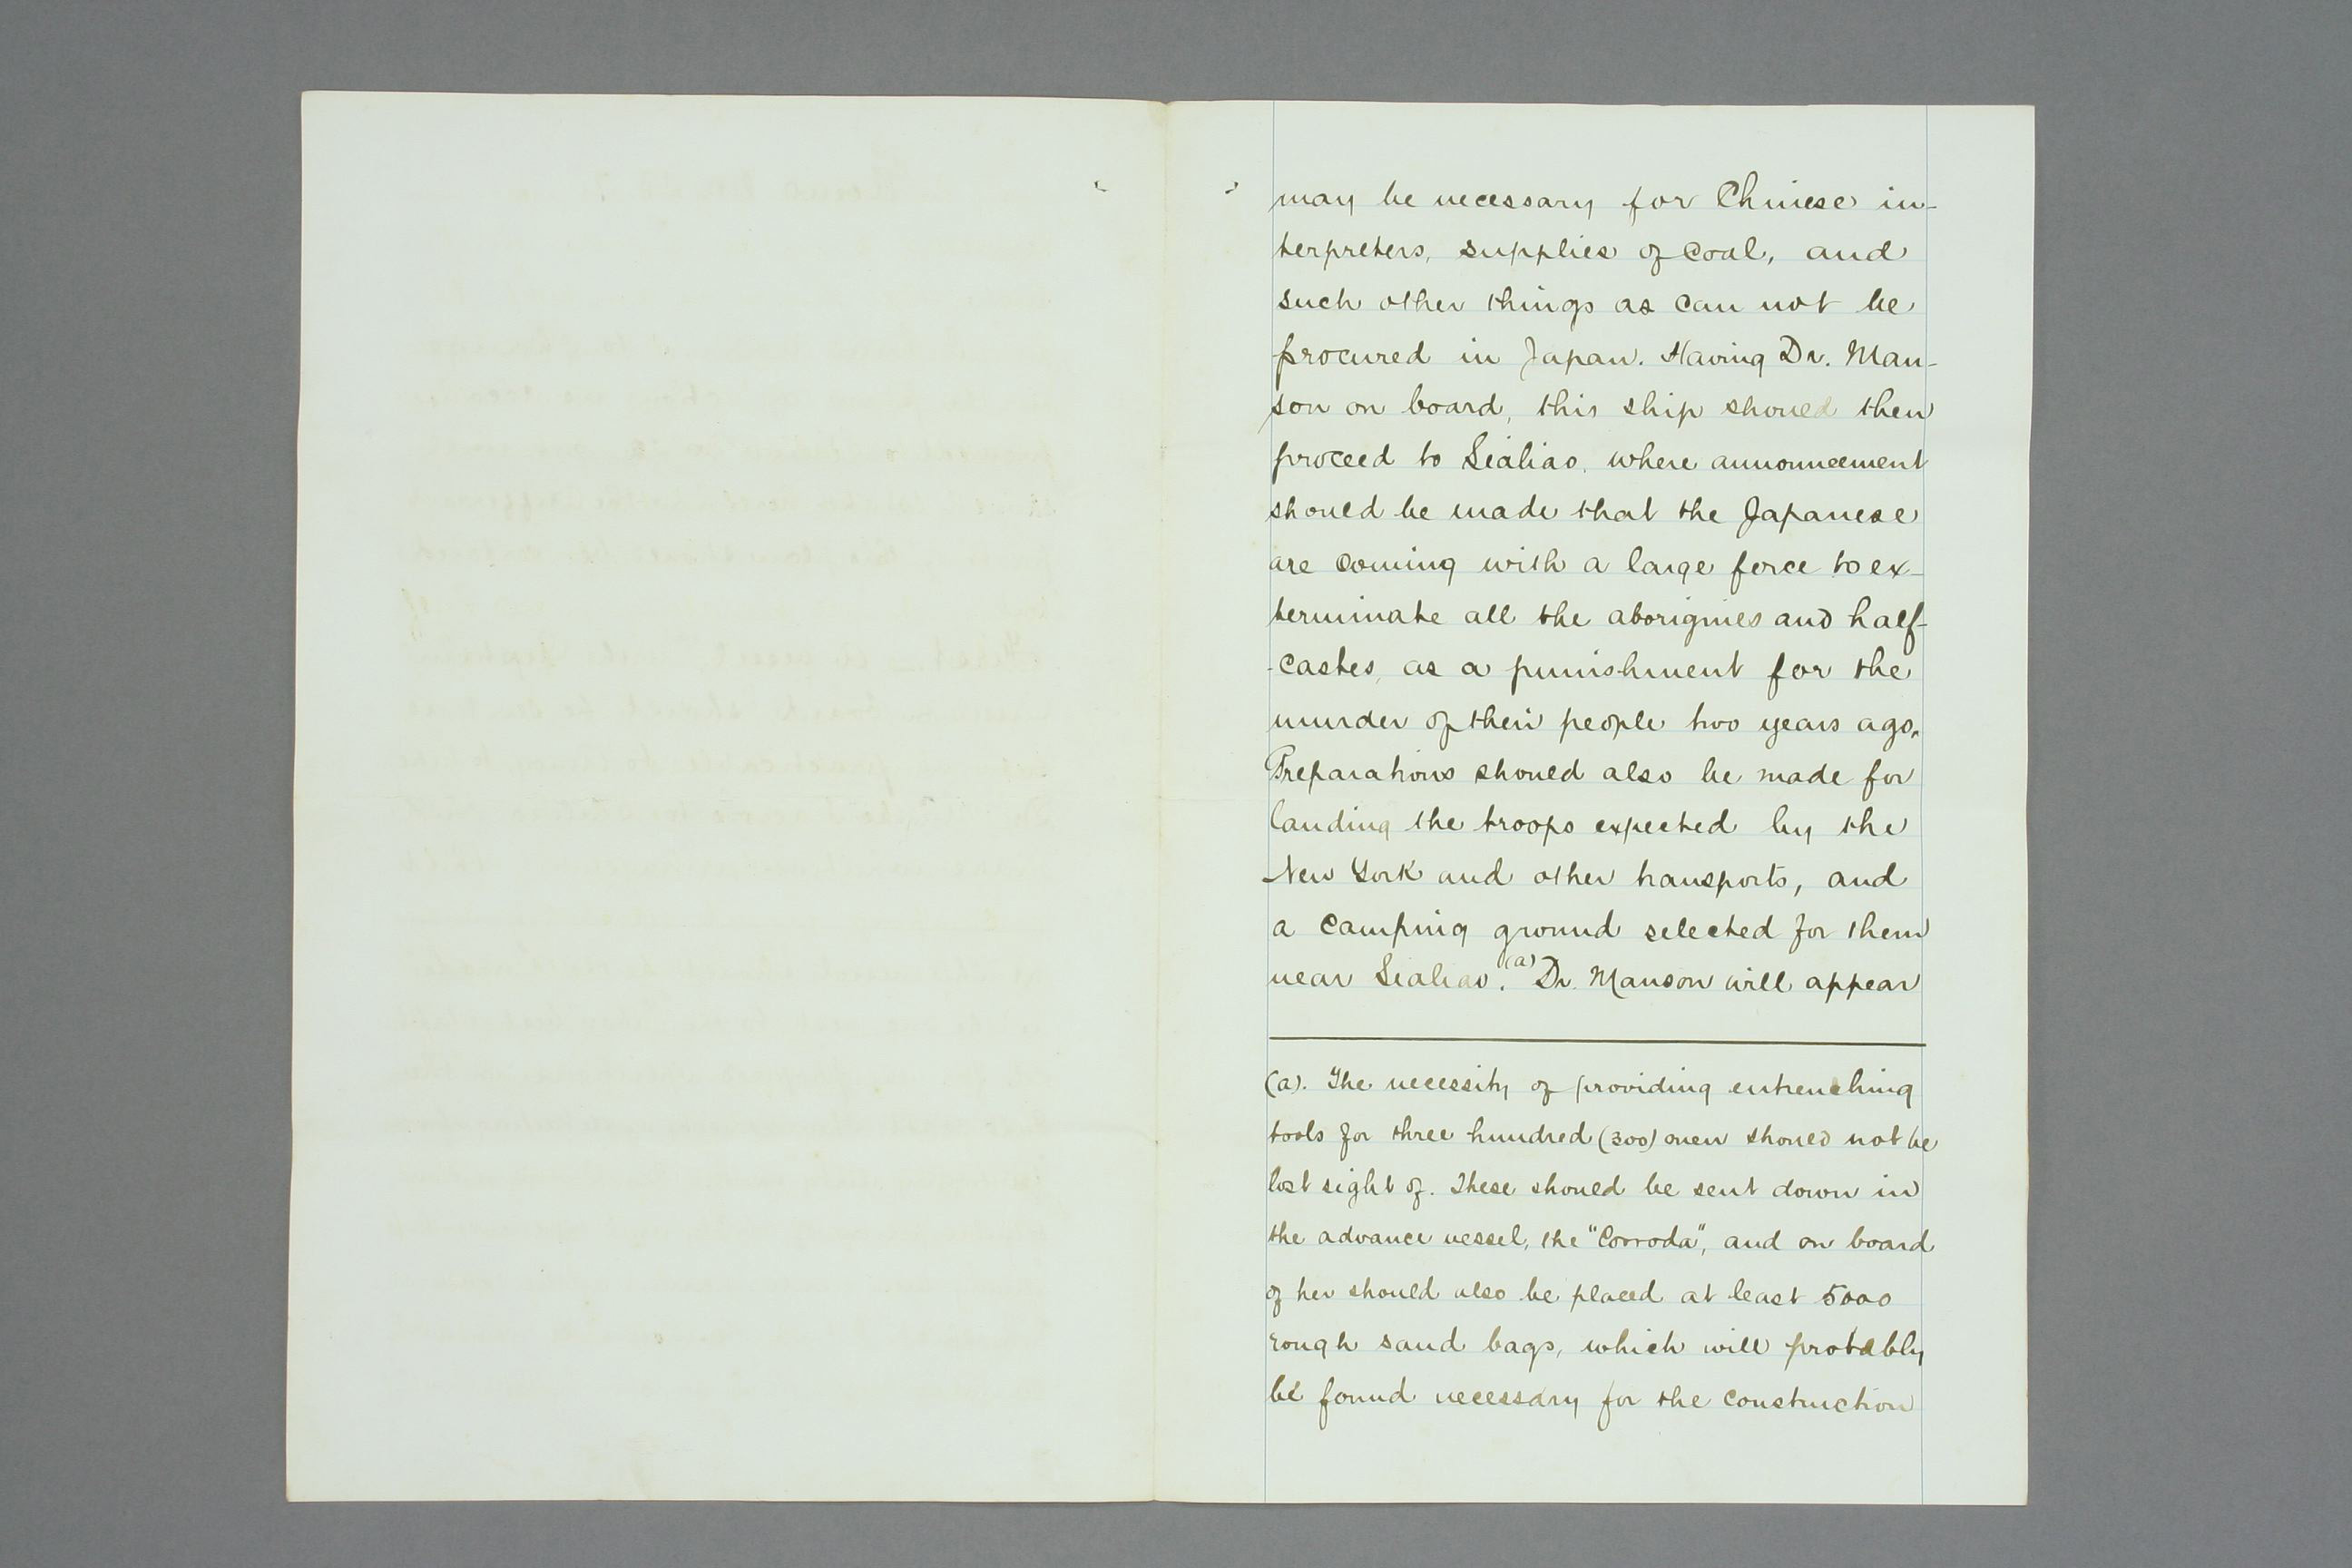 may be necessary for Chinese in-
terpreters, supplies of coal, and
such other things as can not be
procured in Japan. Having Dr. Man-
son on board, this ship should then
proceed to Sialiao, where announcement
should be made that the Japanese
are coming with a large force to ex-
terminate all the aborigines and half-
-castes, as a punishment for the
murder of their people two years ago.
Preparations should also be made for
landing the troops expected by the
New York and other transports, and
a camping ground selected for them
near Sialiao. (a) Dr. Manson will appear
(a). The necessity of providing entrenching
tools for three hundred (300) men should not be
lost sight of. These should be sent down in
the advance vessel, the "Corroda", and on board
of her should also be placed at least 5000
rough sand bags, which will probably
be found necessary for the construction